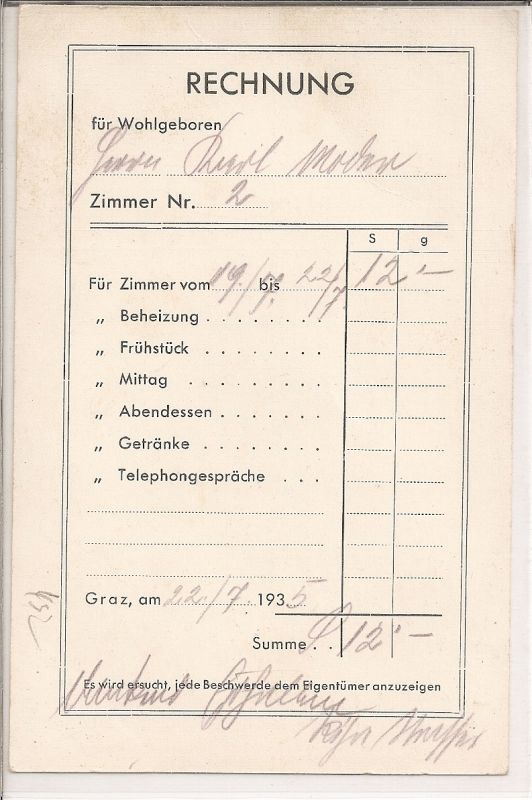 RECHNUNG
für Wohlgeboren
Herrn Karl Moder
Zimmer Nr. 2
S g
Für Zimmer vom 19./7. bis 22/7. 12 . —
„ Beheizung . . . . . . . .
„ Frühstück . . . . . . . .
„ Mittag . . . . . . . . .
„ Abendessen . . . . . . .
„ Getränke . . . . . . . .
„ Telephongespräche . . .
Graz, am 22./7. 1935
Summe . . S 12 . —
Es wird ersucht, jede Beschwerde dem Eigentümer anzuzeigen
dankend